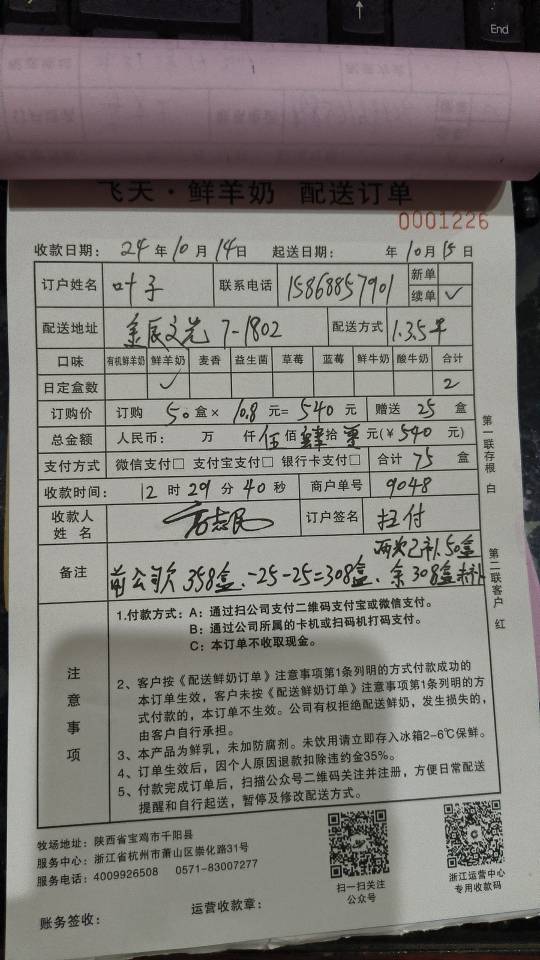 End
飞天·鲜羊奶 配送订单
0001226
收款日期: 24年10月14日 起送日期: 年10月15日
订户姓名 叶子 联系电话 15868857901 新单
续单 ✓
配送地址 7-1802 配送方式 1.3.5
口味 有机鲜羊奶 鲜羊奶 麦香 益生菌 草莓 蓝莓 鲜牛奶 酸牛奶 合计
日定盒数 ✓ 2
订购价 订购 50 盒× 10.8 元= 540 元 赠送 25 盒
总金额 人民币: 万 仟 伍佰 肆拾 零元(¥540元)
支付方式 微信支付□ 支付宝支付□ 银行卡支付□ 合计 75 盒
收款时间: 12时29分40秒 商户单号 9048
收款人姓名 志民 订户签名 扫付
两次已补50盒
备注 前公司欠358盒.-25-25=308盒. 余308盒未补
第一联存根 白
第二联客户 红
注意事项
1.付款方式: A: 通过扫公司支付二维码支付宝或微信支付。
B: 通过公司所属的卡机或扫码机打码支付。
C: 本订单不收取现金。
2、客户按《配送鲜奶订单》注意事项第1条列明的方式付款成功的
本订单生效,客户未按《配送鲜奶订单》注意事项第1条列明的方
式付款的,本订单不生效。公司有权拒绝配送鲜奶,发生损失的,
由客户自行承担。
3、本产品为鲜乳,未加防腐剂。未饮用请立即存入冰箱2-6℃保鲜。
4、订单生效后,因个人原因退款扣除违约金35%。
5、付款完成订单后,扫描公众号二维码关注并注册,方便日常配送
提醒和自行起送,暂停及修改配送方式。
牧场地址: 陕西省宝鸡市千阳县
服务中心: 浙江省杭州市萧山区崇化路31号
服务电话: 4009926508 0571-83007277
扫一扫关注
公众号
浙江运营中心
专用收款码
账务签收: 运营收款章: